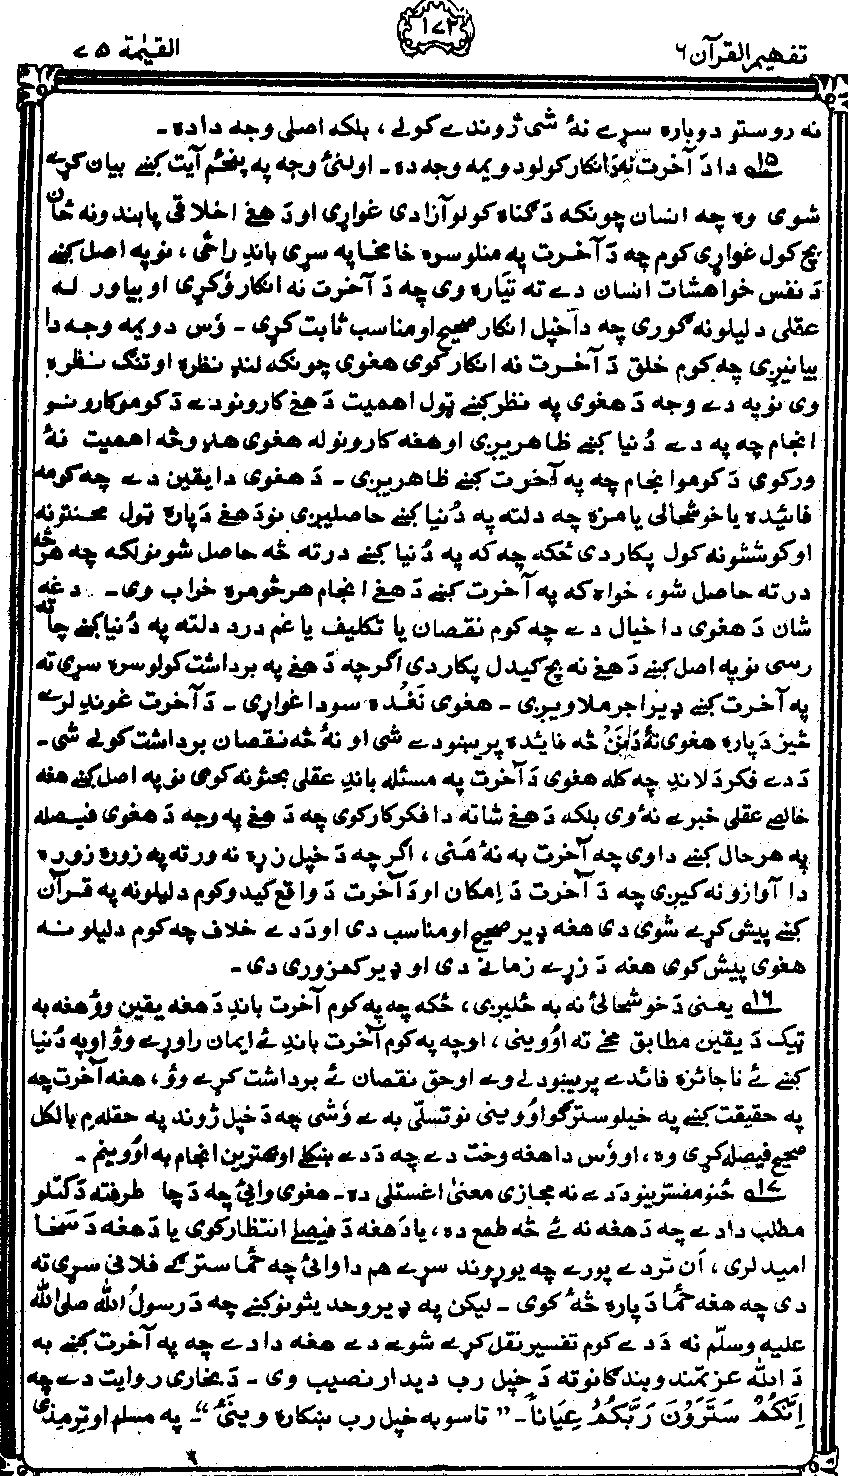 تفهیم القرآن ۶
۱۷۲
القیٰمة ۷۵
نه روستو دوباره سړے نهٔ شی ژوندے کولے، بلکه اصلی وجه داده۔
۱۵ دا دَ آخرت نه دَ انکار کولو دویمه وجه ده۔ اولنئ وجه په پنځم آیت کښے بیان کړے
شوی وه چه انسان چونکه دَ ګناه کولو آزادی غواړی او دَ هغے اخلاقی پابندونه ځان
بچ کول غواړی کوم چه دَ آخرت په منلو سره خامخا په سړی باندِ راځی، نو په اصل کښے
دَ نفس خواهشات انسان دے ته تیاره وی چه دَ آخرت نه انکار وٗکړی او بیا ور له
عقلی دلیلونه ګوری چه دا خپل انکار صحیح او مناسب ثابت کړی۔ وٗس دویمه وجه دا
بیانیږی چه کوم خلق دَ آخرت نه انکار کوی هغوی چونکه لنډ نظره او تنګ نظره
وی نو په دے وجه دَ هغوی په نظر کښے ټول اهمیت دَ هغے کارونو دے دَ کومو کارونو
انجام چه په دے دُنیا کښے ظاهریږی او هغه کارونو له هغوی هډو څه اهمیت نهٔ
ورکوی دَ کومو انجام چه په آخرت کښے ظاهریږی۔ دَ هغوی دا یقین دے چه کومه
فائیده یا خوشحالی یا مزه چه دلته په دُنیا کښے حاصلیږی نو دَ هغے دَ پاره ټول محنتونه
او کوششونه کول پکار دی ځکه چه که په دُنیا کښے درته څه حاصل شو نو لکه چه هر څه
درته حاصل شو، خواه که په آخرت کښے دَ هغے انجام هر څومره خراب وی۔ دغه
شان دَ هغوی دا خیال دے چه کوم نقصان یا تکلیف یا غم درد دلته په دُنیا کښے چا ته
رسی نو په اصل کښے دَ هغے نه بچ کیدل پکار دی اګرچه دَ هغے په برداشت کولو سره سړی ته
په آخرت کښے ډیر اجر ملاویږی۔ هغوی نَغده سودا غواړی۔ دَ آخرت غوندِ لرے
څیز دَ پاره هغوی نهٔ دَ نن څه فائده پریښودے شی او نهٔ څه نقصان برداشت کولے شی۔
دَ دے فکر دَ لاندِ چه کله هغوی دَ آخرت په مسئله باندِ عقلی بحثونه کوی نو په اصل کښے هغه
خالصے عقلی خبرے نهٔ وی بلکه دَ هغے شا ته دا فکر کار کوی چه دَ هغے په وجه دَ هغوی فیصله
په هر حال کښے دا وی چه آخرت به نهٔ مَنی، اګرچه دَ خپل زړه نه ورته په زوره زوره
دا آوازونه کیږی چه دَ آخرت دَ اِمکان او دَ آخرت دَ واقع کیدو کوم دلیلونه په قرآن
کښے پیش کړے شوی دی هغه ډیر صحیح او مناسب دی او دَ دے خلاف چه کوم دلیلونه
هغوی پیش کوی هغه دَ زړے زمانے دی او ډیر کمزوری دی۔
۱۶ یعنی دَ خوشحالئ نه به ځلیږی، ځکه چه په کوم آخرت باندِ دَ هغه یقین وؤ هغه به
ټیک دَ یقین مطابق مخے ته اوٗوینی، او چه په کوم آخرت باندِ ئے ایمان راوړے وؤ او په دُنیا
کښے ئے ناجائزه فائدے پریښودلے وے او حق نقصان ئے برداشت کړے وؤ، هغه آخرت چه
په حقیقت کښے په خپلو سترګو اوٗوینی نو تسلّی به ے وٗشی چه دَ خپل ژوند په حقله م بالکل
صحیح فیصله کړی وه، او وٗس دا هغه وخت دے چه دَ دے ښکلے او بهترین انجام به اوٗوینم۔
۱۷ ځنو مفسّرینو دَ دے نه مجازی معنیٰ اغستلی ده۔ هغوی وائی چه دَ چا طرفته دَ کتلو
مطلب دا دے چه دَ هغه نه ئے څه طمع ده، یا دَ هغه دَ فیصلے انتظار کوی یا دَ هغه دَ سخا
امید لری، اَن تر دے پورے چه یو ړوند سړے هم دا وائی چه ځما سترګے فلانی سړی ته
دی چه هغه ځما دَ پاره څهٔ کوی۔ لیکن په ډیرو حدیثونو کښے چه دَ رسولُ الله صلی الله
علیه وسلّم نه دَ دے کوم تفسیر نقل کړے شوے دے هغه دا دے چه په آخرت کښے به
دَ الله عزّتمندو بندګانو ته دَ خپل رب دیدار نصیب وی۔ دَ بخاری روایت دے چه
اِنَّکُمْ سَتَرَوْنَ رَبَّکُمْ عِیَاناً۔ "تاسو به خپل رب ښکاره وینئ"۔ په مسلم او ترمذی